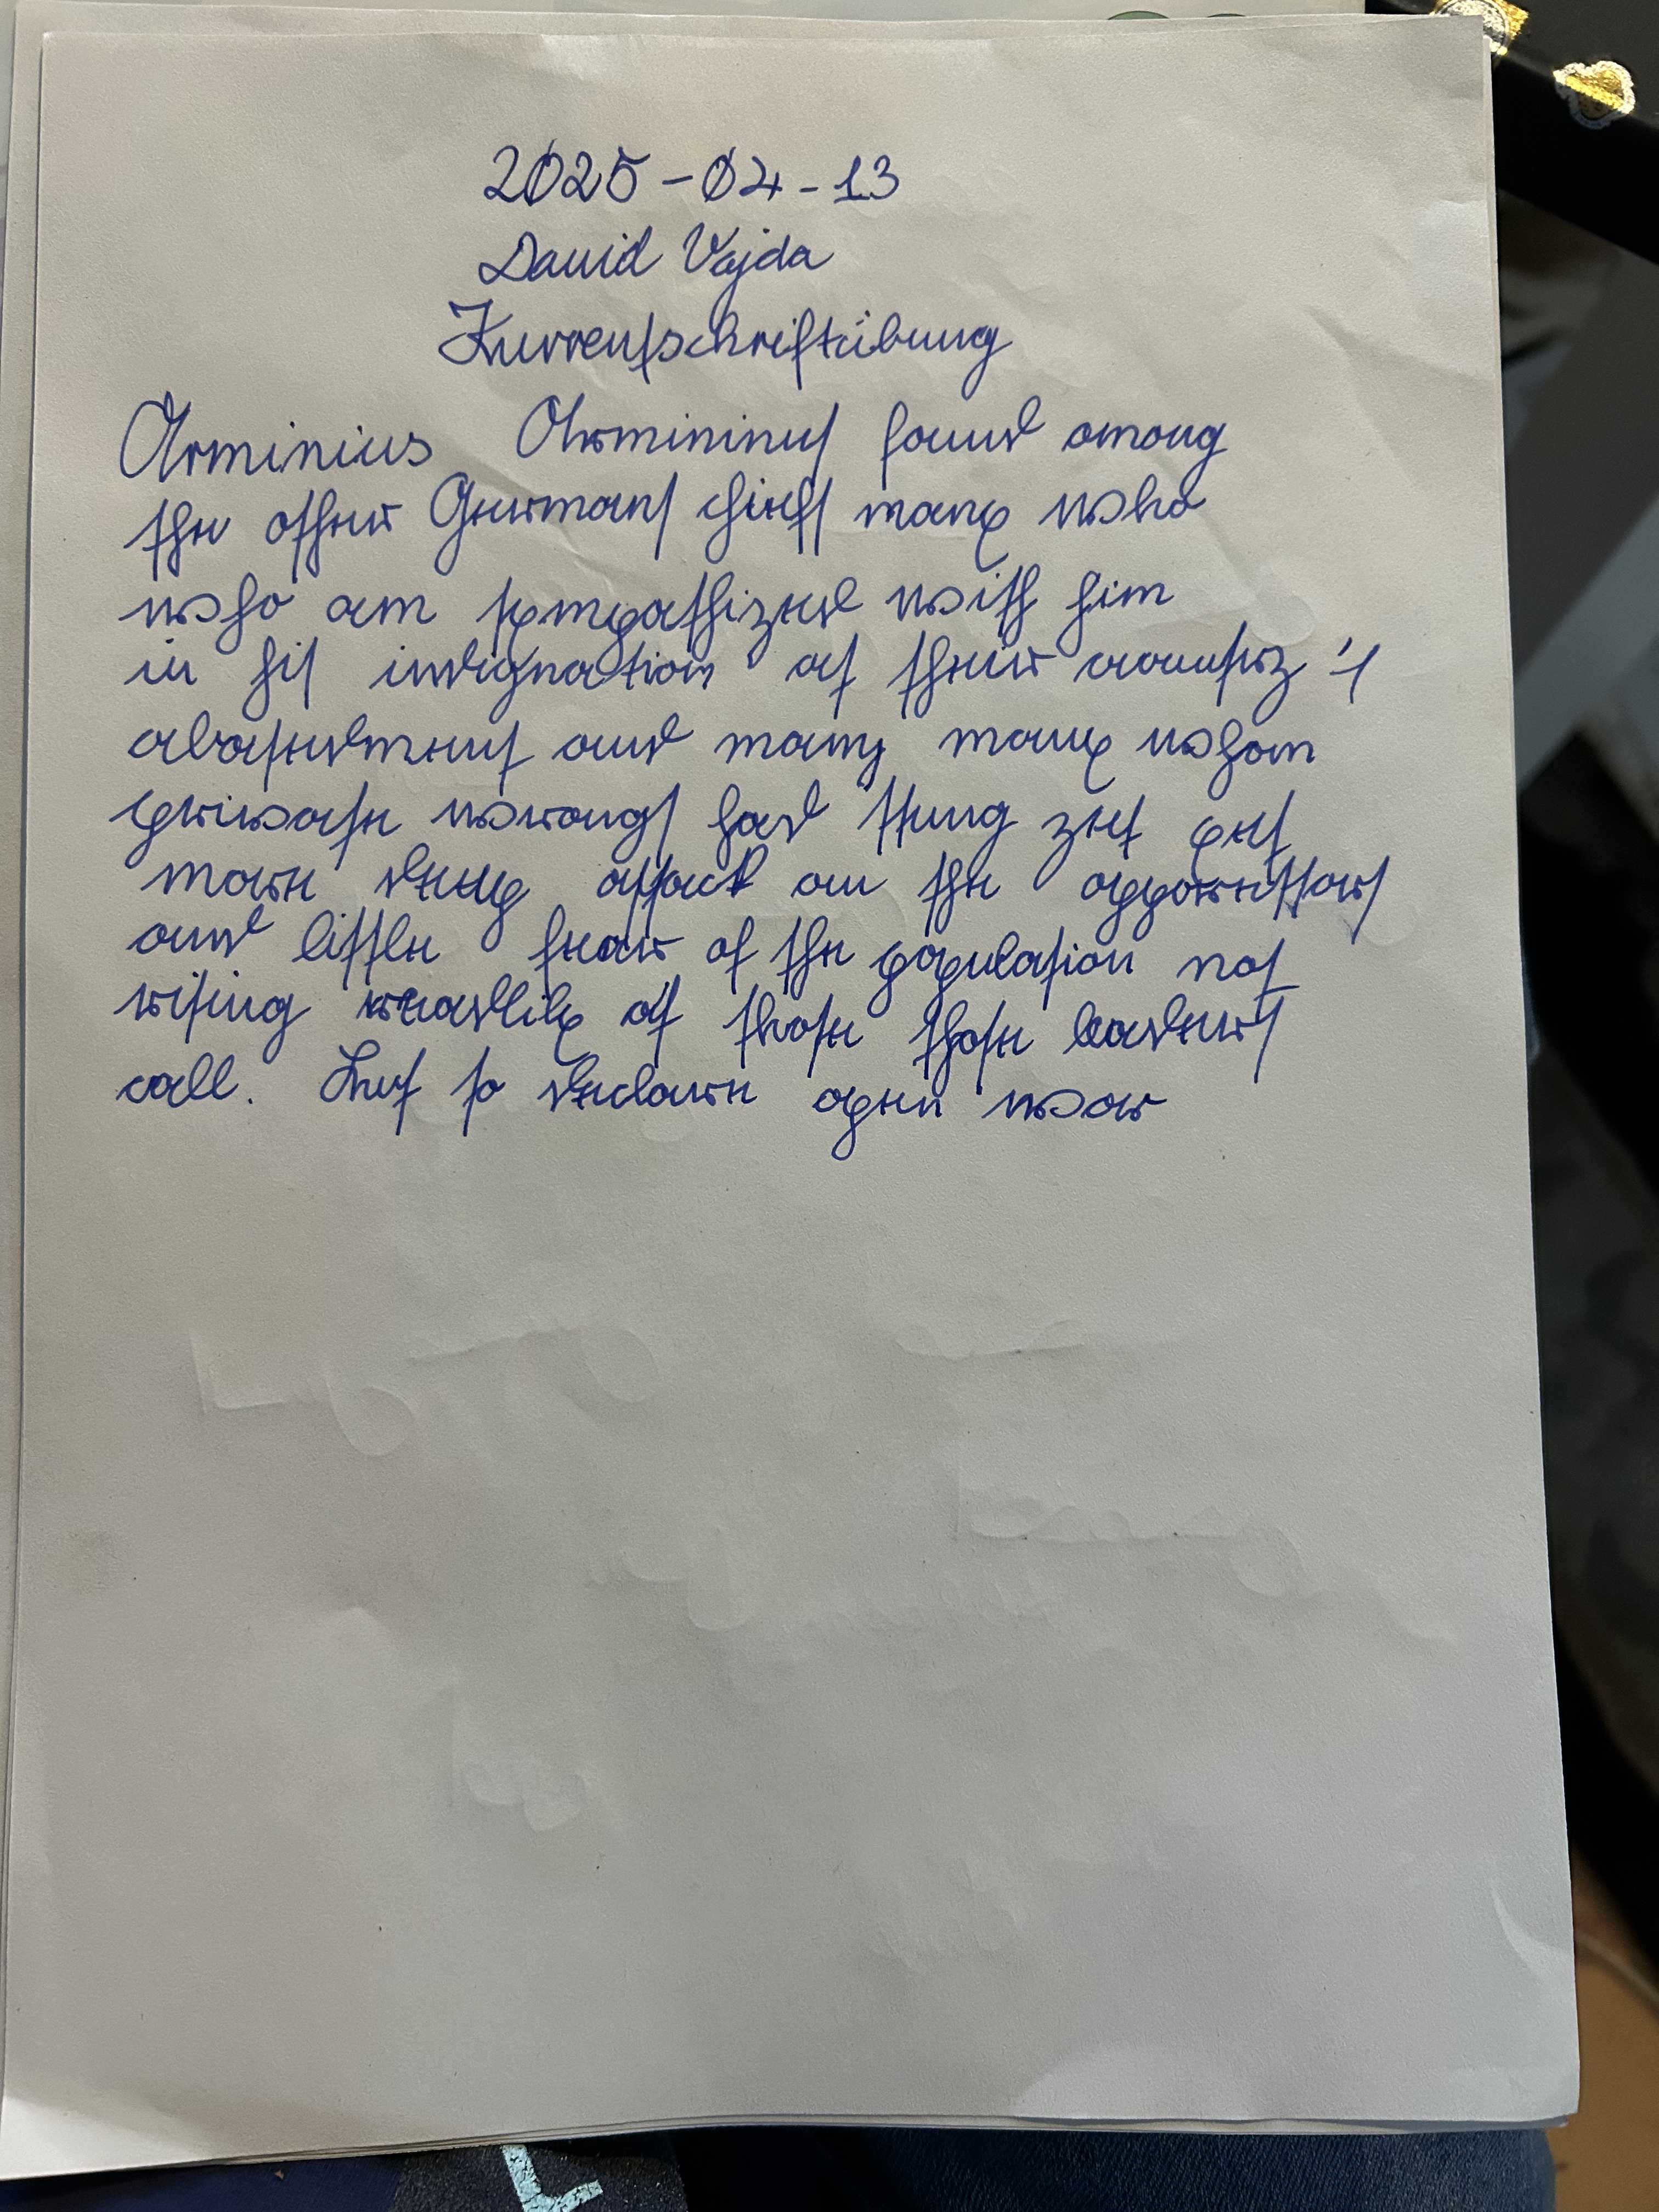 2025-04-13
David Vajda
Kurrentschriftübung
Arminius Arminius found among
the other Germans chiefs many who
who am sympathized with him
in his indignation at their country's
abasedment and many many whom
private wrongs had stung zet yet
more deep attack on the oppresstors
and little fear of the population not
rising readlily at those those leaders
call. But to declare open war